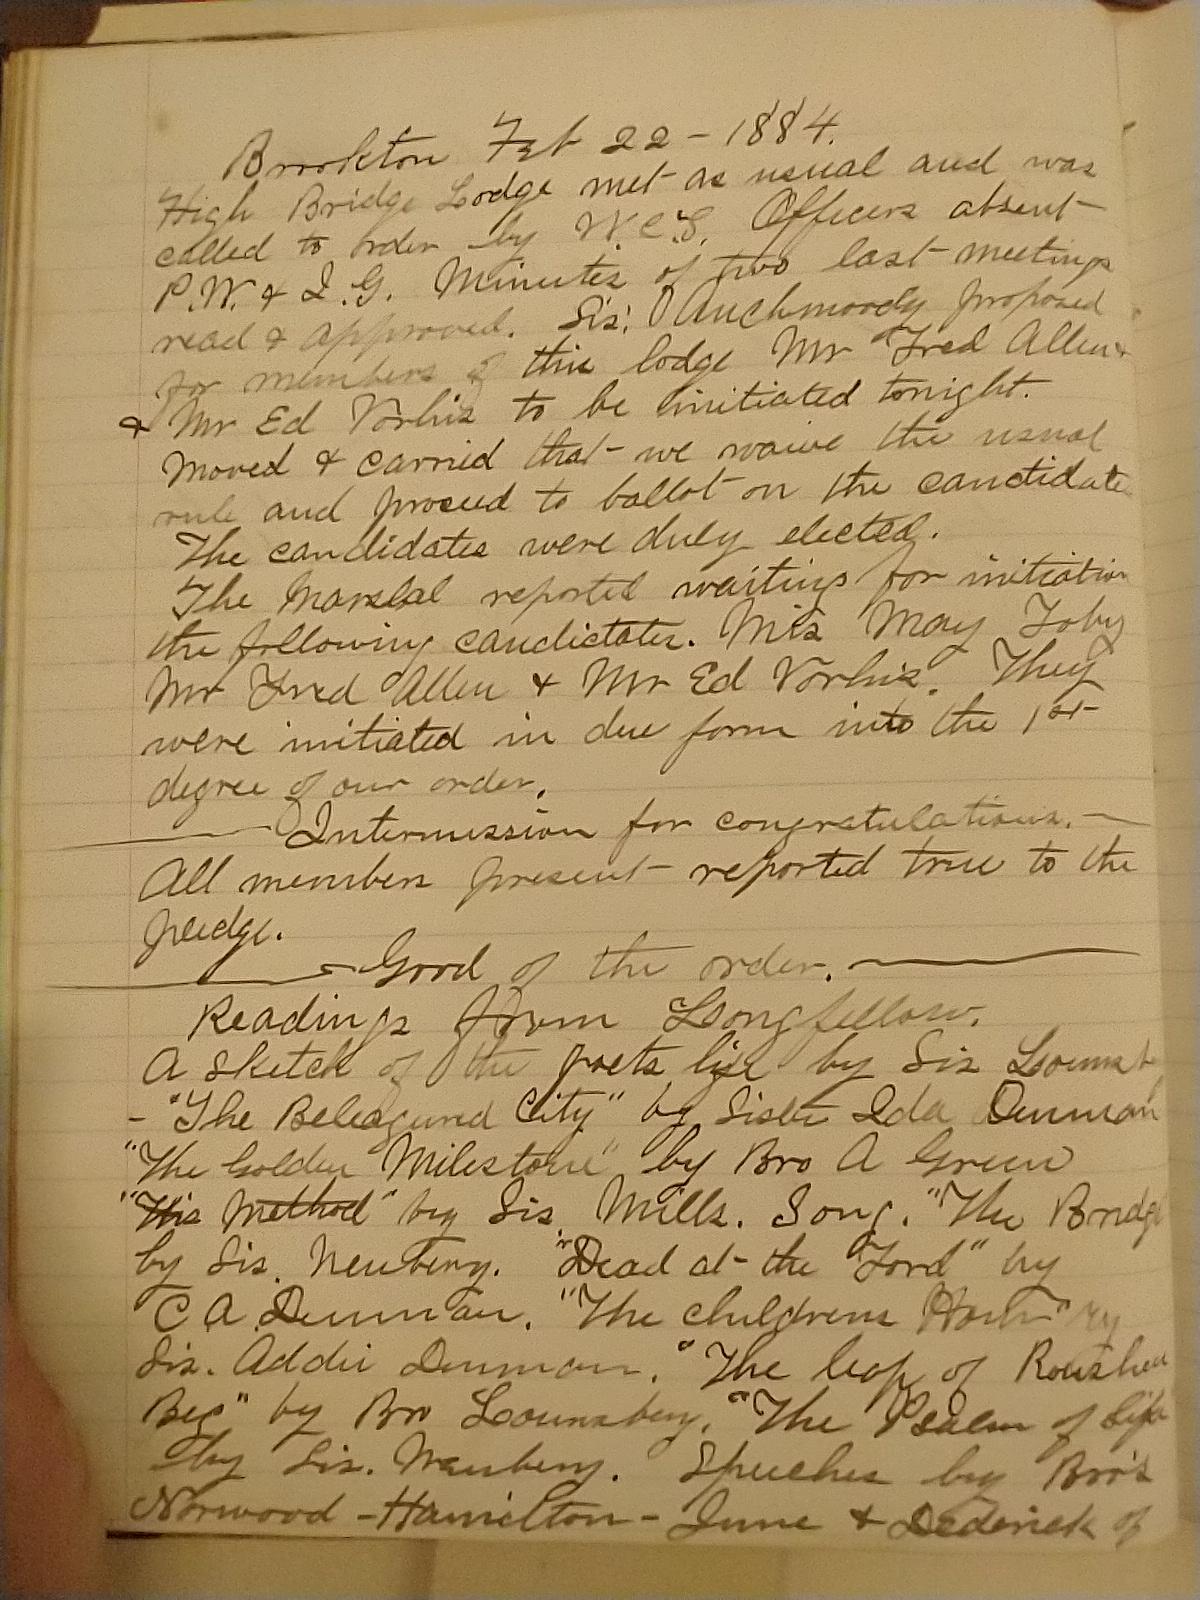 Brookton Feb 22 - 1884.
High Bridge Lodge met as usual and was
called to order by W.C.S. Officers absent
P.W. & I.G. Minutes of two last meetings
read & approved. Sis. Auchmoody proposed
for members of this lodge Mr Fred Allen &
& Mr Ed Vorhis to be initiated tonight.
Moved & carried that we waive the usual
rule and proceed to ballot on the candidates
The candidates were duly elected.
The Marshal reported waiting for initiation
the following candidates. Mis May Toby
Mr Fred Allen & Mr Ed Vorhis. They
were initiated in due form into the 1st
degree of our order.
Intermission for congratulations.
All members present reported true to the
pledge.
Good of the order.
Readings from Longfellow.
A sketch of the poets life by Sis
- "The Beleagured City" by Sister Ida Denman
"The Golden Milestone" by Bro A Green
"His Method" by Sis. Mills. Song. "The Bridge
by Sis. Newbery. "Dead at the Ford" by
C A Denman. "The childrens Hour" by
Sis. Addie Denman. "The leap of Roushen
Beg" by Bro Lounsbery. "The Psalm of Life
by Sis. Newbery. Speeches by Bro's
Norwood - Hamilton - June & Dederick of